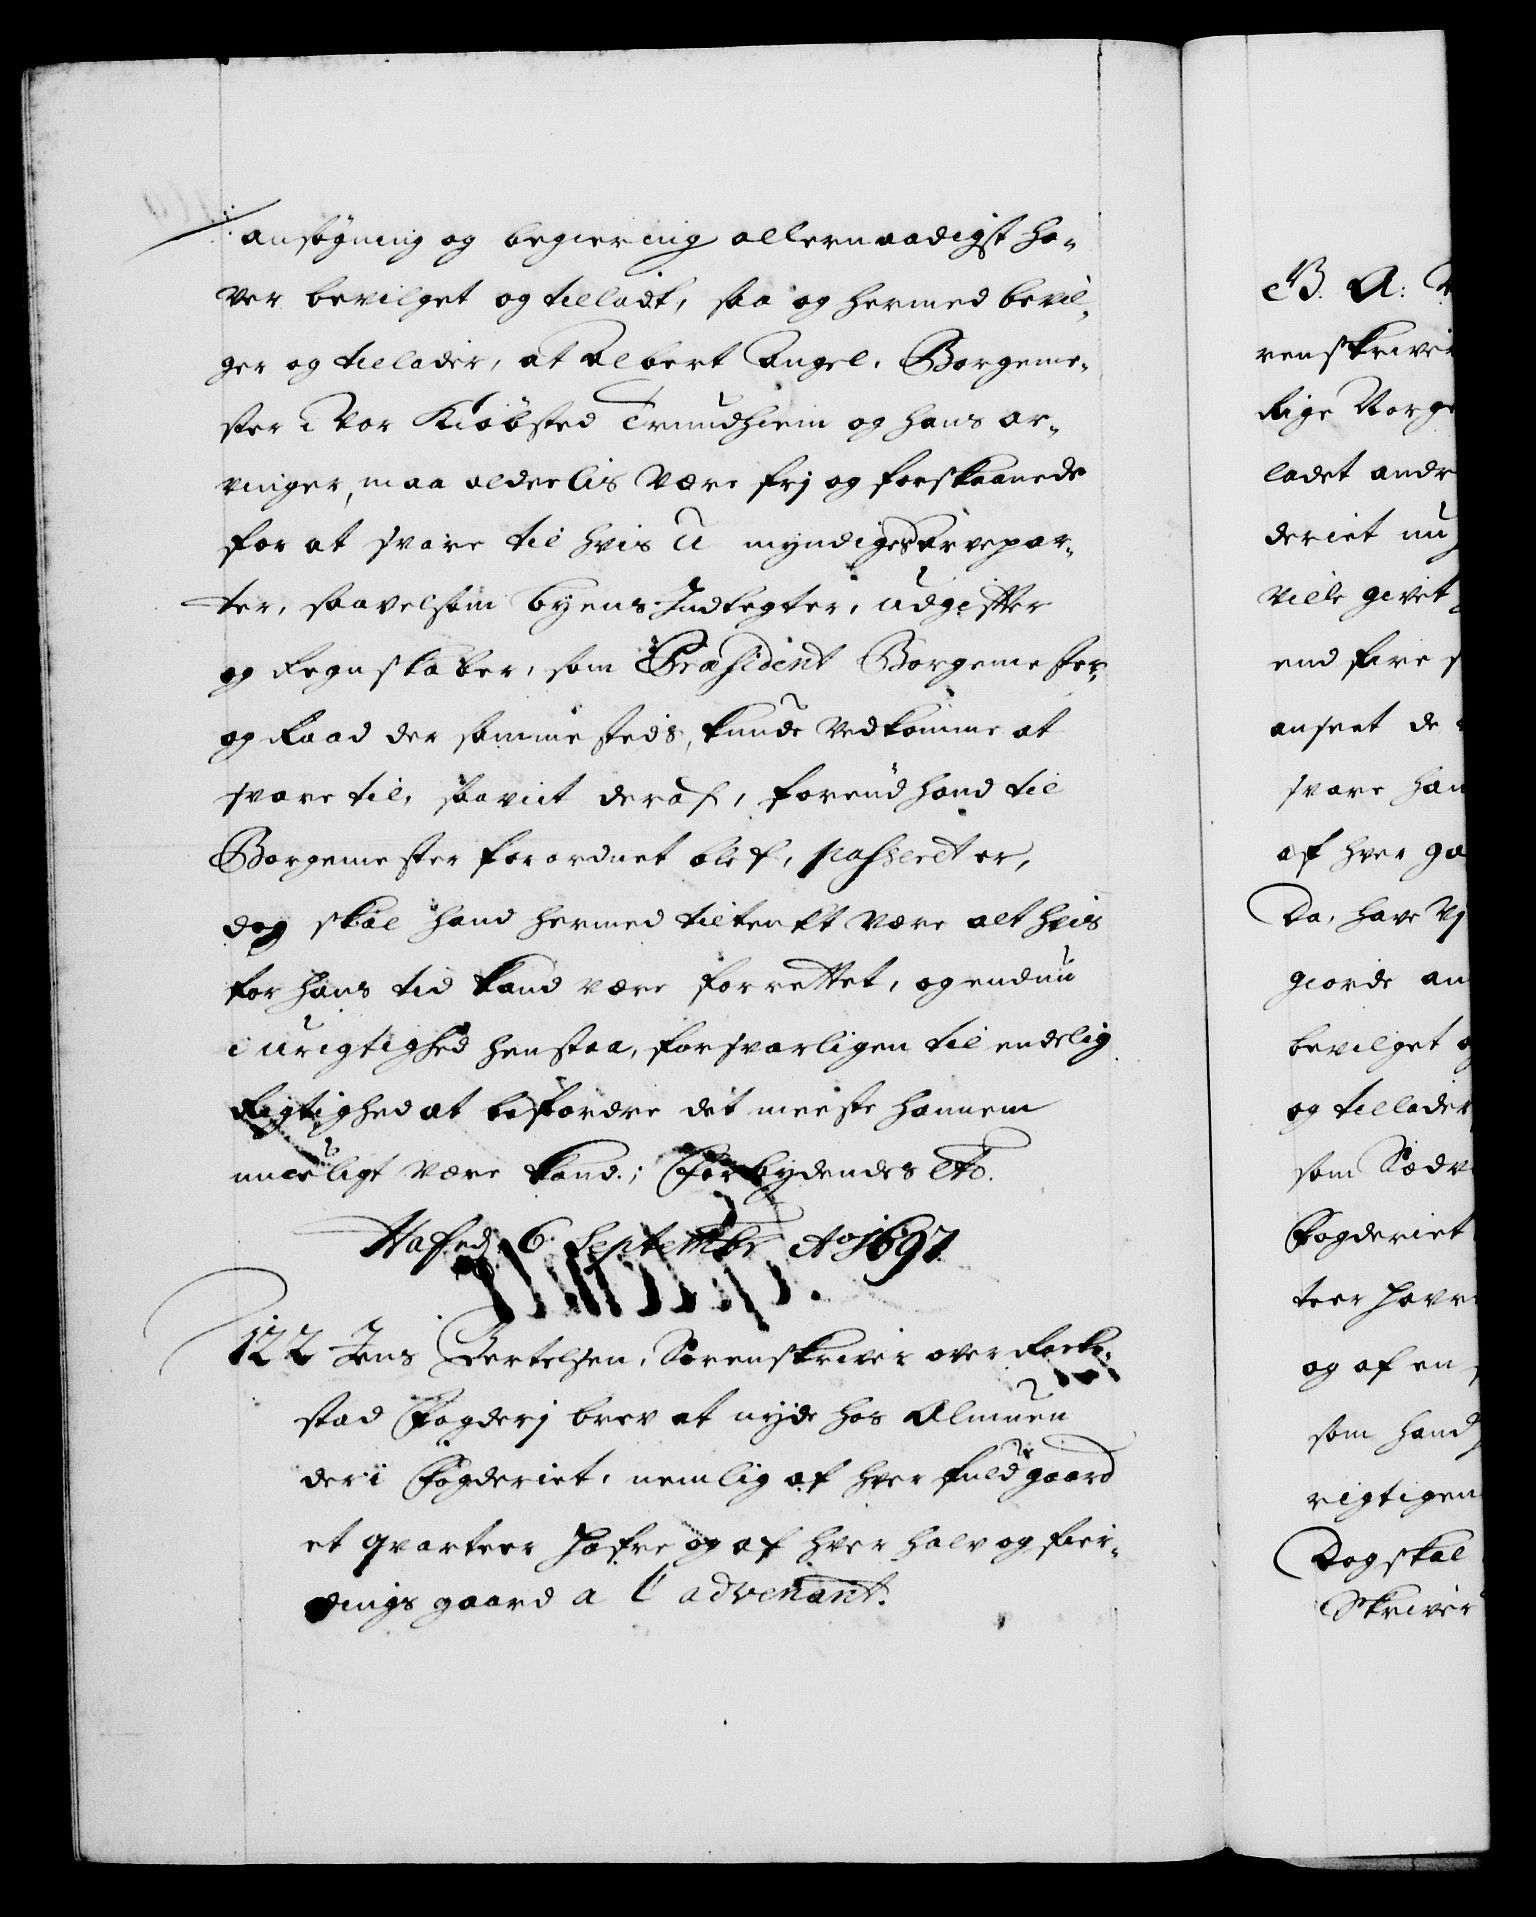 ansøgning og begiering allernaadigst ha-
ver bevilget og tilladt, saa og hermed bevil-
ger og tillader, at Albert Angel, Borgeme-
ster i Vor Kiøbsted Trundhiem og hans ar-
vinger, maa aldeelis være frj og forskaanede
for at svare til hvis U myndiges Arvepar-
ter, saavelsom byens Indtegter, udgifter
og Regnskaber, som Præsident Borgemester
og Raad der sammesteds, kunde vedkomme at
svare til, saavit deraf, forend hand til
Borgemester forordnet blef, passeret er,
dog skal hand hermed tiltenkt være alt hvis
for hans tid kand være forrettet, og endnu
i urigtighed henstaa, forsvarligen til endelig
Rigtighed at befordre det meeste hannem
mueligt være kand.; Forbydendes etc.
Hafn. d. 6. Septembr Ao 1697
122 Jens Bertelsen, Sorenskriver over
stad Fogderj brev at nyde hos Almuen
der i Fogderiet, nemlig af hver fuld gaard
et qvarteer Hafre og af hver halv og fier-
dings gaard a l' advenant.
B. A:
renskriver
Rige Norge
ladet andr
deriet nu
ville givet
end fire
anseet de
svare han
af hver ga
Da, have Vj
giorde an
bevilget o
og tillader
som Sædv
Fogderiet
teer Havr
og af en
som hand
rigtigen
Dog skal
Skriver